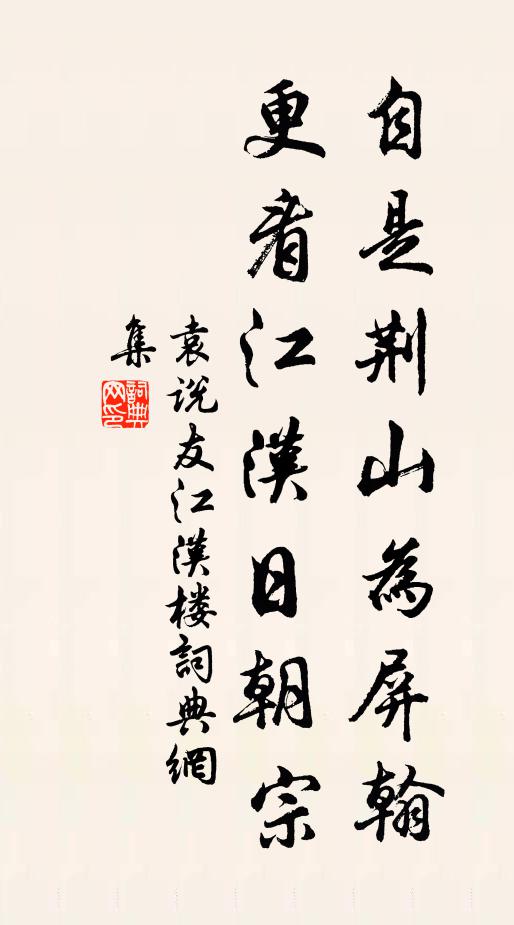 自是荆山為屏翰
更看江漢日朝宗
袁说友江漢楼詞典網
集
詞典网印